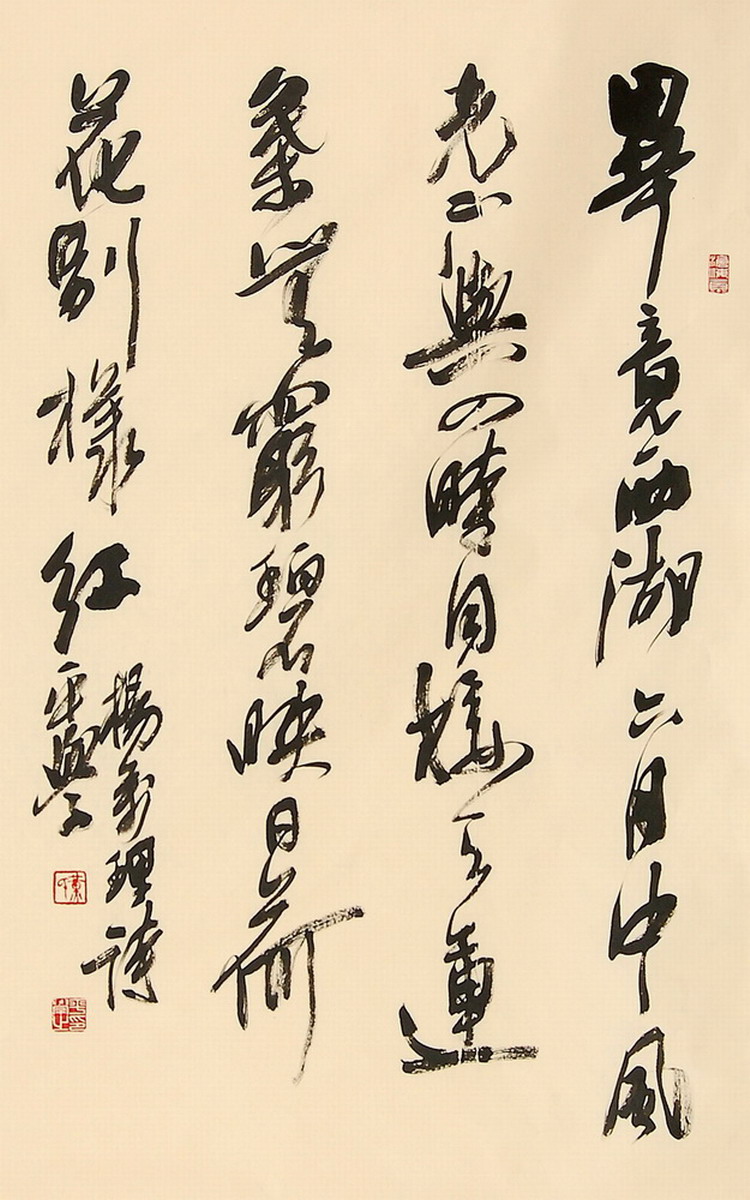 畢竟西湖六月中風
光不與四時同接天蓮
葉無窮碧映日荷
花別樣紅
楊萬理詩
平學